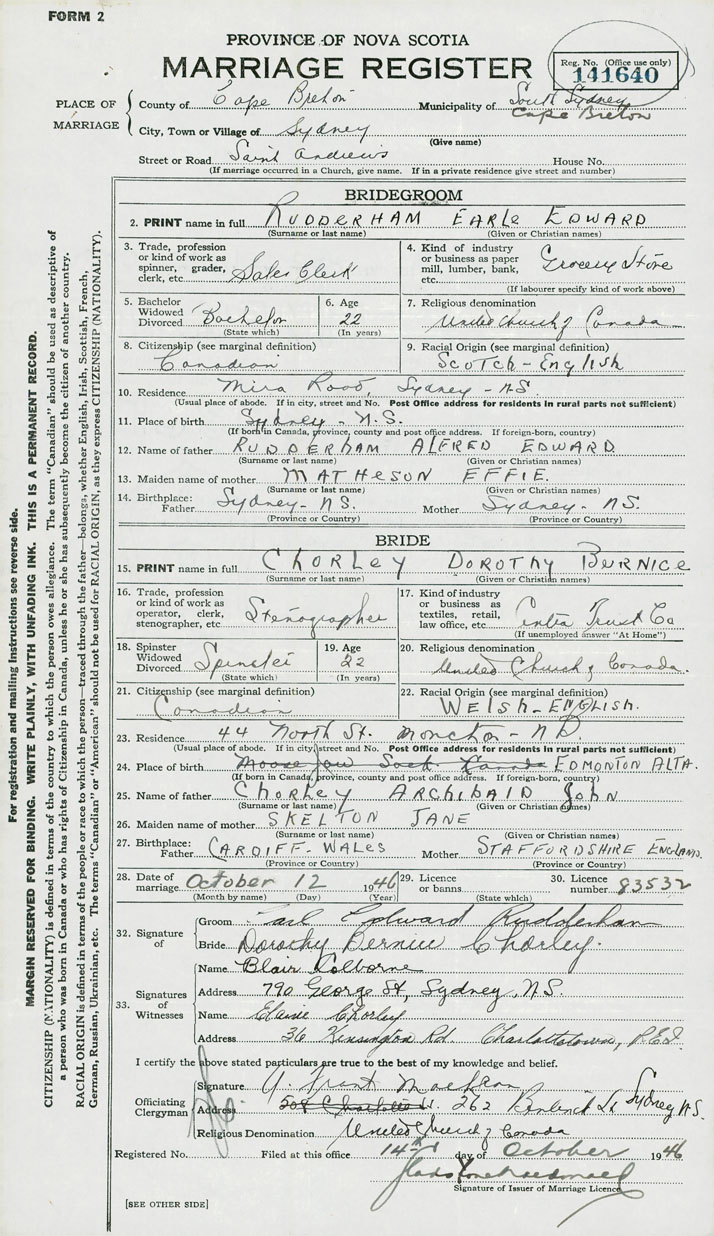 FORM 2
PROVINCE OF NOVA SCOTIA
MARRIAGE REGISTER
Reg. No. (Office use only)
141640
PLACE OF MARRIAGE
County of Cape Breton Municipality of South Sydney
Cape Breton
City, Town or Village of Sydney
(Give name)
Street or Road Saint Andrews House No.
(If marriage occurred in a Church, give name. If in a private residence give street and number)
BRIDEGROOM
2. PRINT name in full RUDDERHAM EARLE EDWARD
(Surname or last name) (Given or Christian names)
3. Trade, profession or kind of work as spinner, grader, clerk, etc. Sales Clerk
4. Kind of industry or business as paper mill, lumber, bank, etc. Grocery Store
(If labourer specify kind of work above)
5. Bachelor Widowed Divorced Bachelor
(State which)
6. Age 22
(In years)
7. Religious denomination
United Church of Canada
8. Citizenship (see marginal definition)
Canadian
9. Racial Origin (see marginal definition)
SCOTCH - ENGLISH
10. Residence Mira Road, Sydney - N.S.
(Usual place of abode. If in city, street and No. Post Office address for residents in rural parts not sufficient)
11. Place of birth Sydney - N.S.
(If born in Canada, province, county and post office address. If foreign-born, country)
12. Name of father RUDDERHAM ALFRED EDWARD
(Surname or last name) (Given or Christian names)
13. Maiden name of mother MATHESON EFFIE.
(Surname or last name) (Given or Christian names)
14. Birthplace: Father Sydney - NS. Mother Sydney - NS.
(Province or Country) (Province or Country)
BRIDE
15. PRINT name in full CHORLEY DOROTHY BURNICE
(Surname or last name) (Given or Christian names)
16. Trade, profession or kind of work as operator, clerk, stenographer, etc Stenographer
17. Kind of industry or business as textiles, retail, law office, etc. Trust Co
(If unemployed answer "At Home")
18. Spinster Widowed Divorced Spinster
(State which)
19. Age 22
(In years)
20. Religious denomination
United Church of Canada.
21. Citizenship (see marginal definition)
Canadian
22. Racial Origin (see marginal definition)
WELSH - ENGLISH.
23. Residence 44 North St. Moncton - NB.
(Usual place of abode. If in city, street and No. Post Office address for residents in rural parts not sufficient)
24. Place of birth Moose Jaw Sask Canada EDMONTON ALTA.
(If born in Canada, province, county and post office address. If foreign-born, country)
25. Name of father CHORLEY ARCHIBALD John
(Surname or last name) (Given or Christian names)
26. Maiden name of mother SKELTON JANE
(Surname or last name) (Given or Christian names)
27. Birthplace: Father CARDIFF - WALES Mother STAFFORDSHIRE ENGLAND.
(Province or Country) (Province or Country)
28. Date of marriage October 12 1946
(Month by name) (Day) (Year)
29. Licence or banns
(State which)
30. Licence number 83532
32. Signature of
Groom Earle Edward Rudderham
Bride Dorothy Bernice Chorley.
33. Signatures of Witnesses
Name Blair Colborne
Address 790 George St, Sydney, N.S.
Name Elaine Chorley
Address 36 Kensington Rd. Charlottetown, P.E.I.
I certify the above stated particulars are true to the best of my knowledge and belief.
Officiating Clergyman
Signature
Address 262 Sydney N.S.
Religious Denomination United Church of Canada
Registered No. Filed at this office 14th day of October 1946
Signature of Issuer of Marriage Licence
[SEE OTHER SIDE]
For registration and mailing instructions see reverse side.
MARGIN RESERVED FOR BINDING. WRITE PLAINLY, WITH UNFADING INK. THIS IS A PERMANENT RECORD.
CITIZENSHIP (NATIONALITY) is defined in terms of the country to which the person owes allegiance. The term "Canadian" should be used as descriptive of
a person who was born in Canada or who has rights of Citizenship in Canada, unless he or she has subsequently become the citizen of another country.
RACIAL ORIGIN is defined in terms of the people or race to which the person—traced through the father—belongs, whether English, Irish, Scottish, French,
German, Russian, Ukrainian, etc. The terms "Canadian" or "American" should not be used for RACIAL ORIGIN, as they express CITIZENSHIP (NATIONALITY).